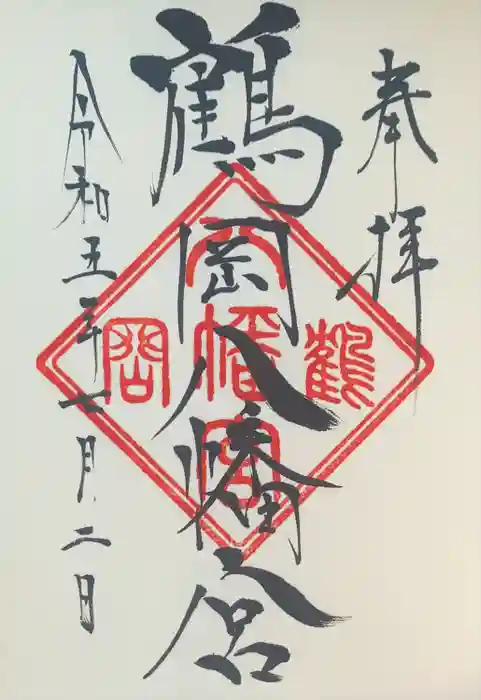 奉拝
鶴岡八幡宮
令和五年七月二日
鶴
八幡宮
岡